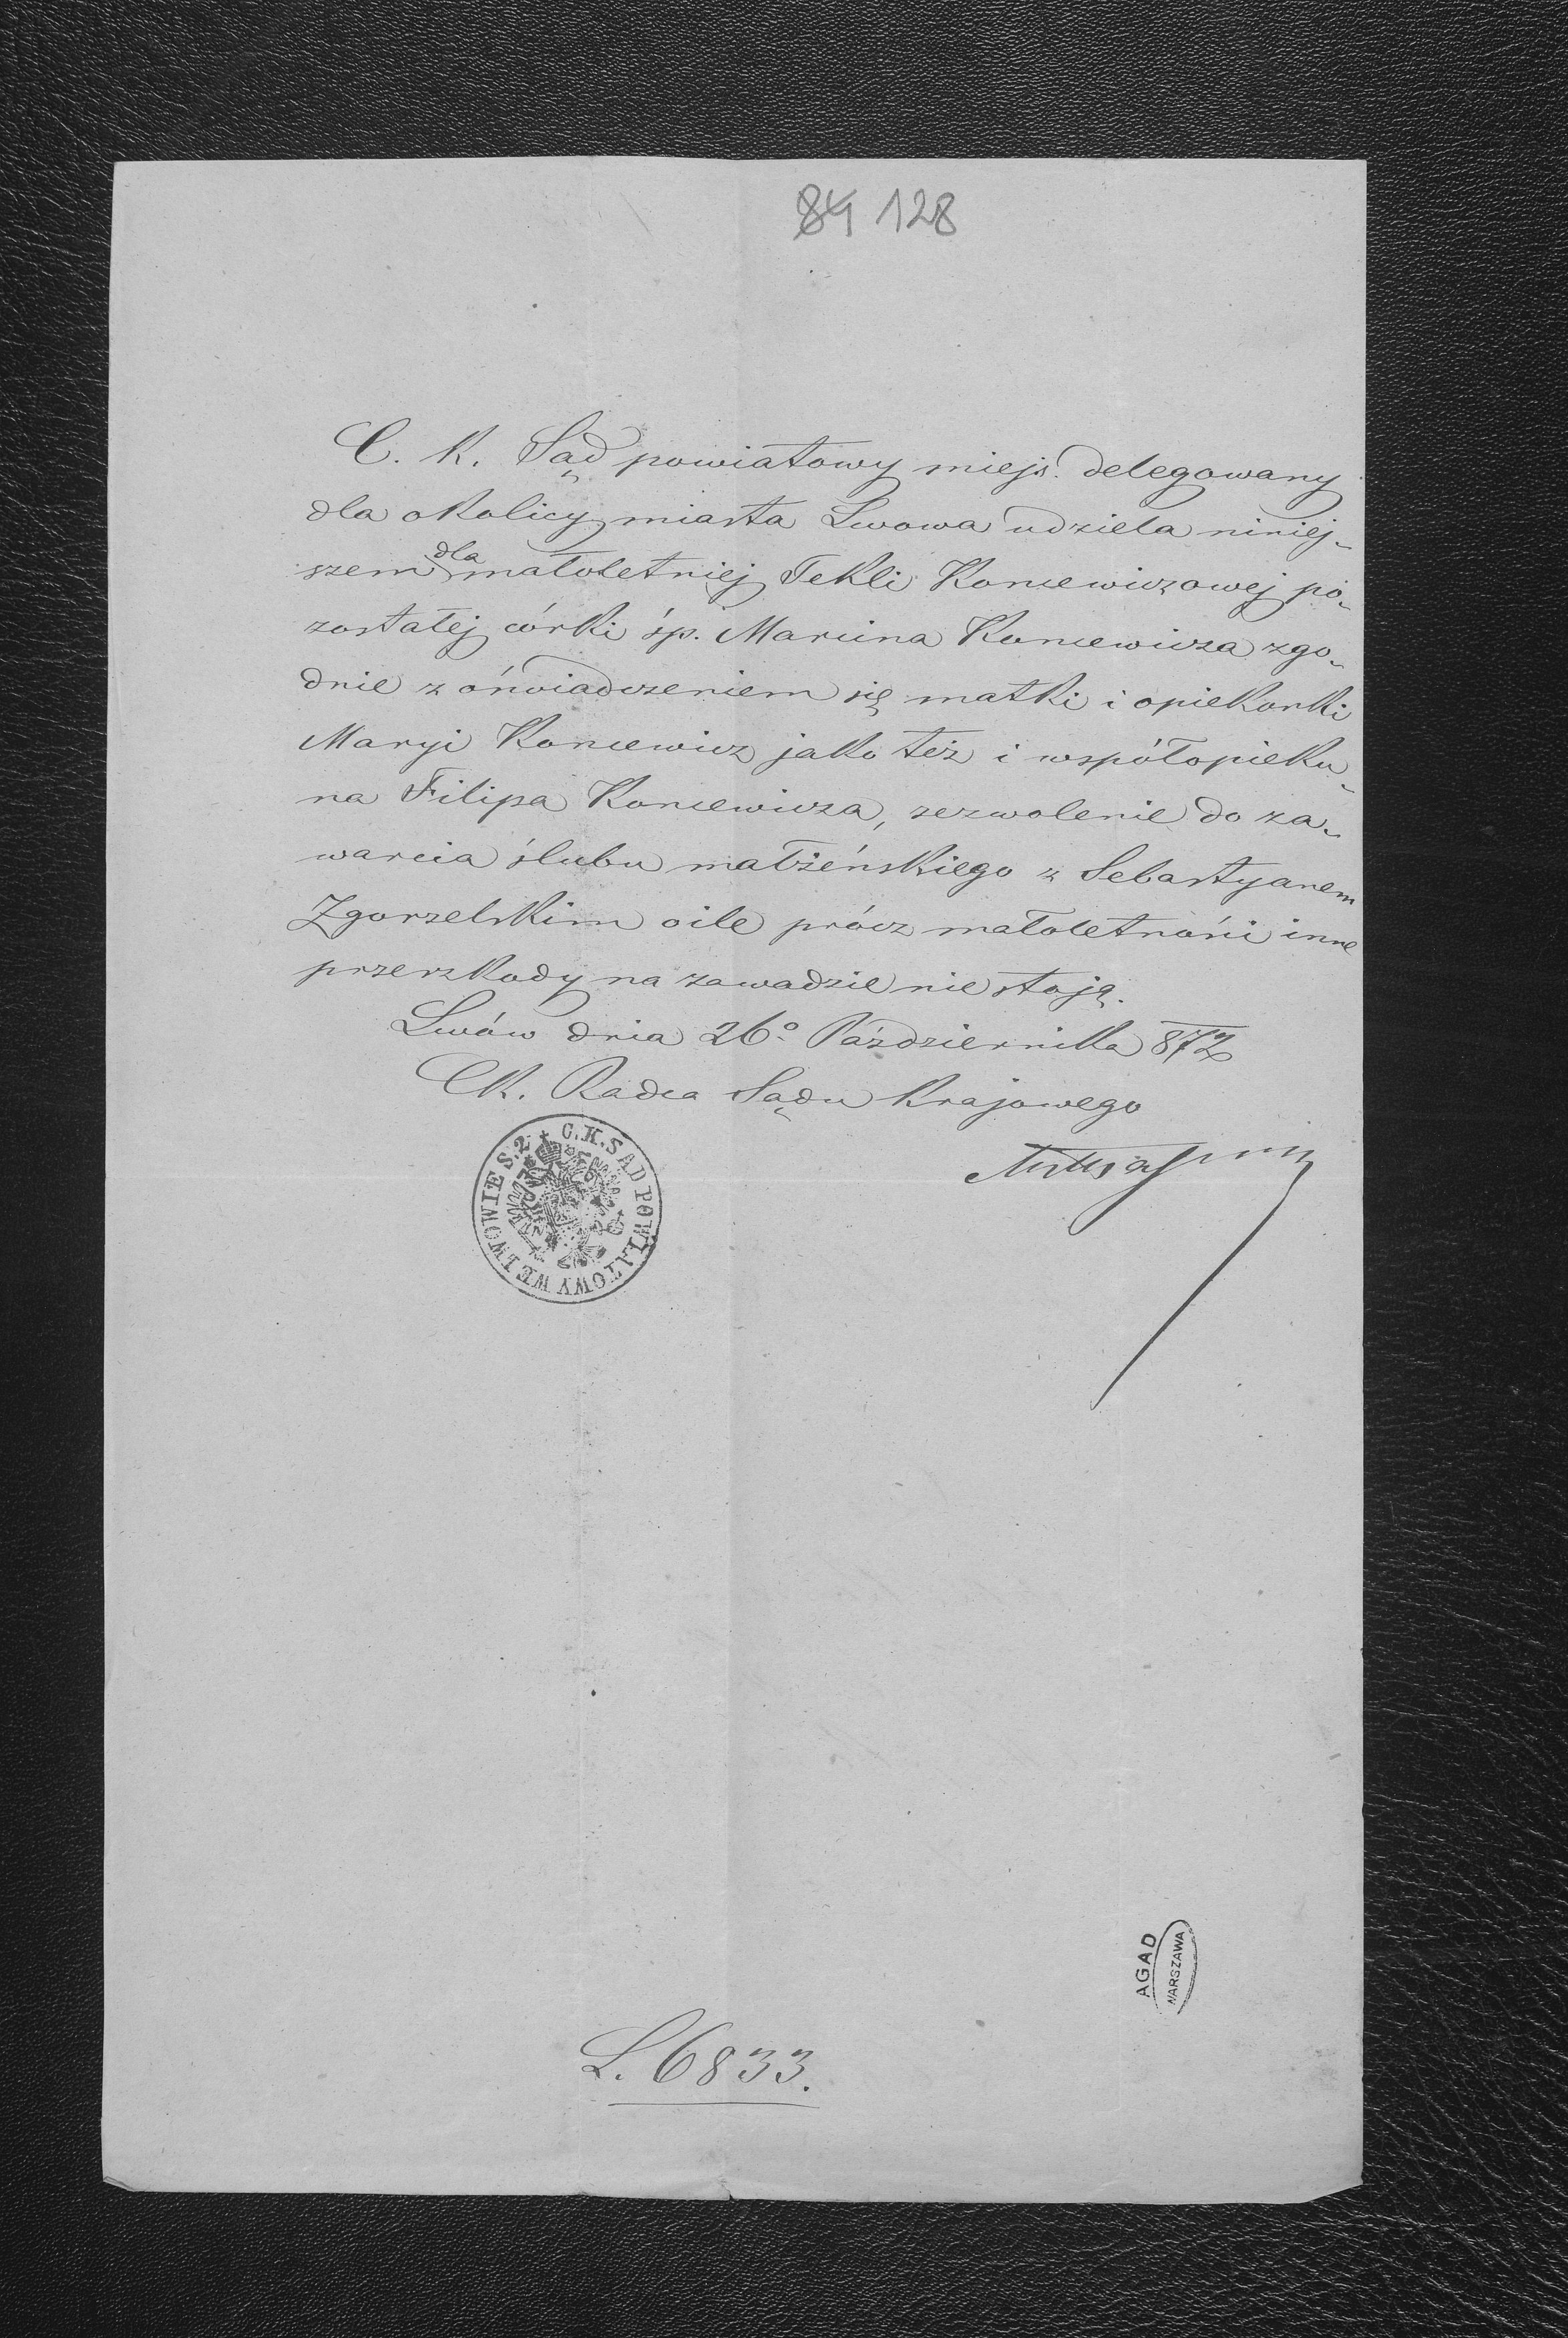 84 128
C. K. Sąd powiatowy miejs. delegowany
dla okolicy miasta Lwowa udziela niniej-
szem dla małoletniej Tekli Koncewiczowej po-
zostałej córki śp. Marcina Koncewicza zgo-
dnie z oświadczeniem się matki i opiekunki
Maryi Koncewicz jako też i współopieku-
na Filipa Koncewicza, zezwolenie do za-
warcia ślubu małżeńskiego z Sebastyanem
Zgorzelskim oile prócz małoletności inne
przeszkody na zawadzie nie stoją.
Lwów dnia 26º Października 872
CK. Radca Sądu Krajowego
C.K. SĄD POWIATOWY WE LWOWIE S.2
AGAD
WARSZAWA
L. 6833.